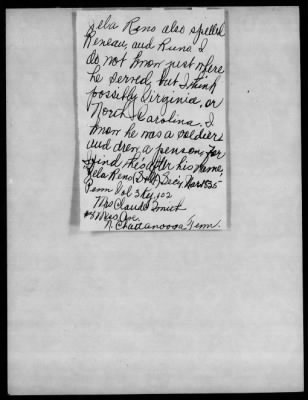 Zela Reno also spelled
Reneau, and Runa I
do not know just where
he served, but I think
possibly Virginia, or
North Carolina. I
know he was a soldier
and drew a pension, for
I find this after his name,
Zela Reno Sec'y War 1835
Penn Vol 3
Mrs Claude Smith
Ave.
N. Chattanooga Tenn.